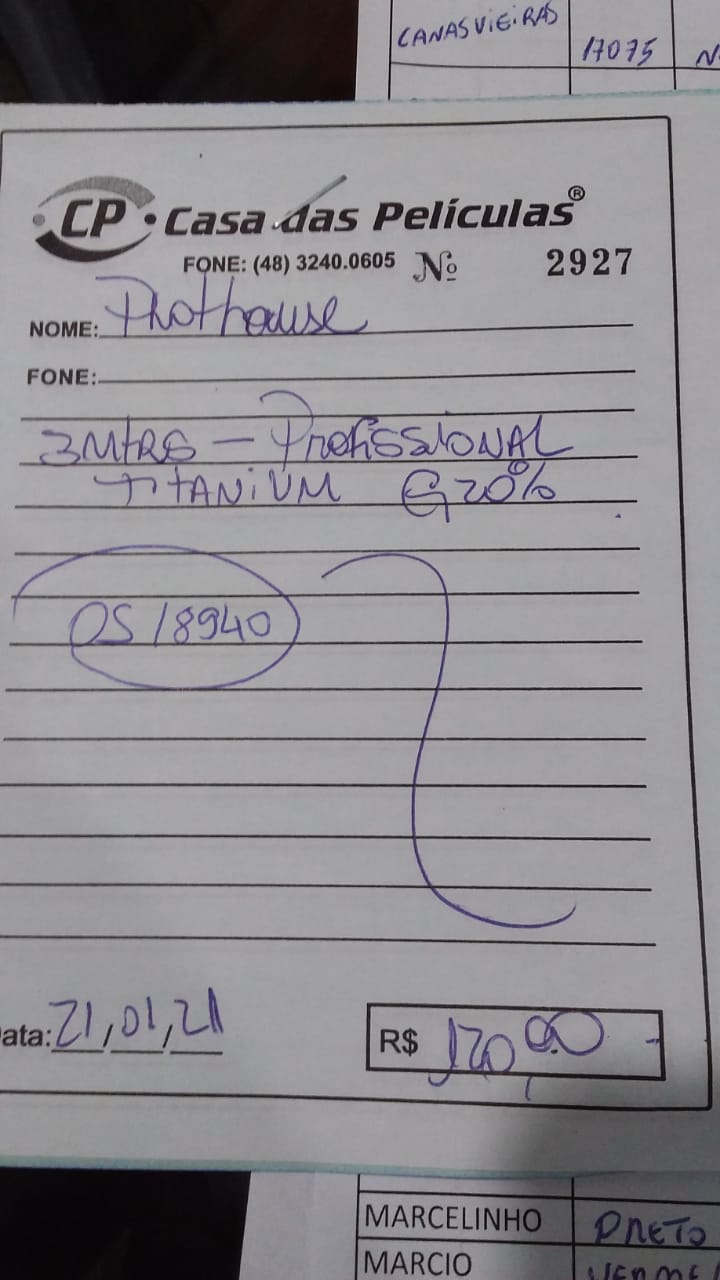 CANASVIEIRAS 17075
CP • Casa das Películas®
FONE: (48) 3240.0605 Nº 2927
NOME: Prothouse
FONE:
3MtRS - Profissional
TITANIUM G20%
OS 18940
ata: 21/01/21 R$ 120,00
MARCELINHO PRETO
MARCIO